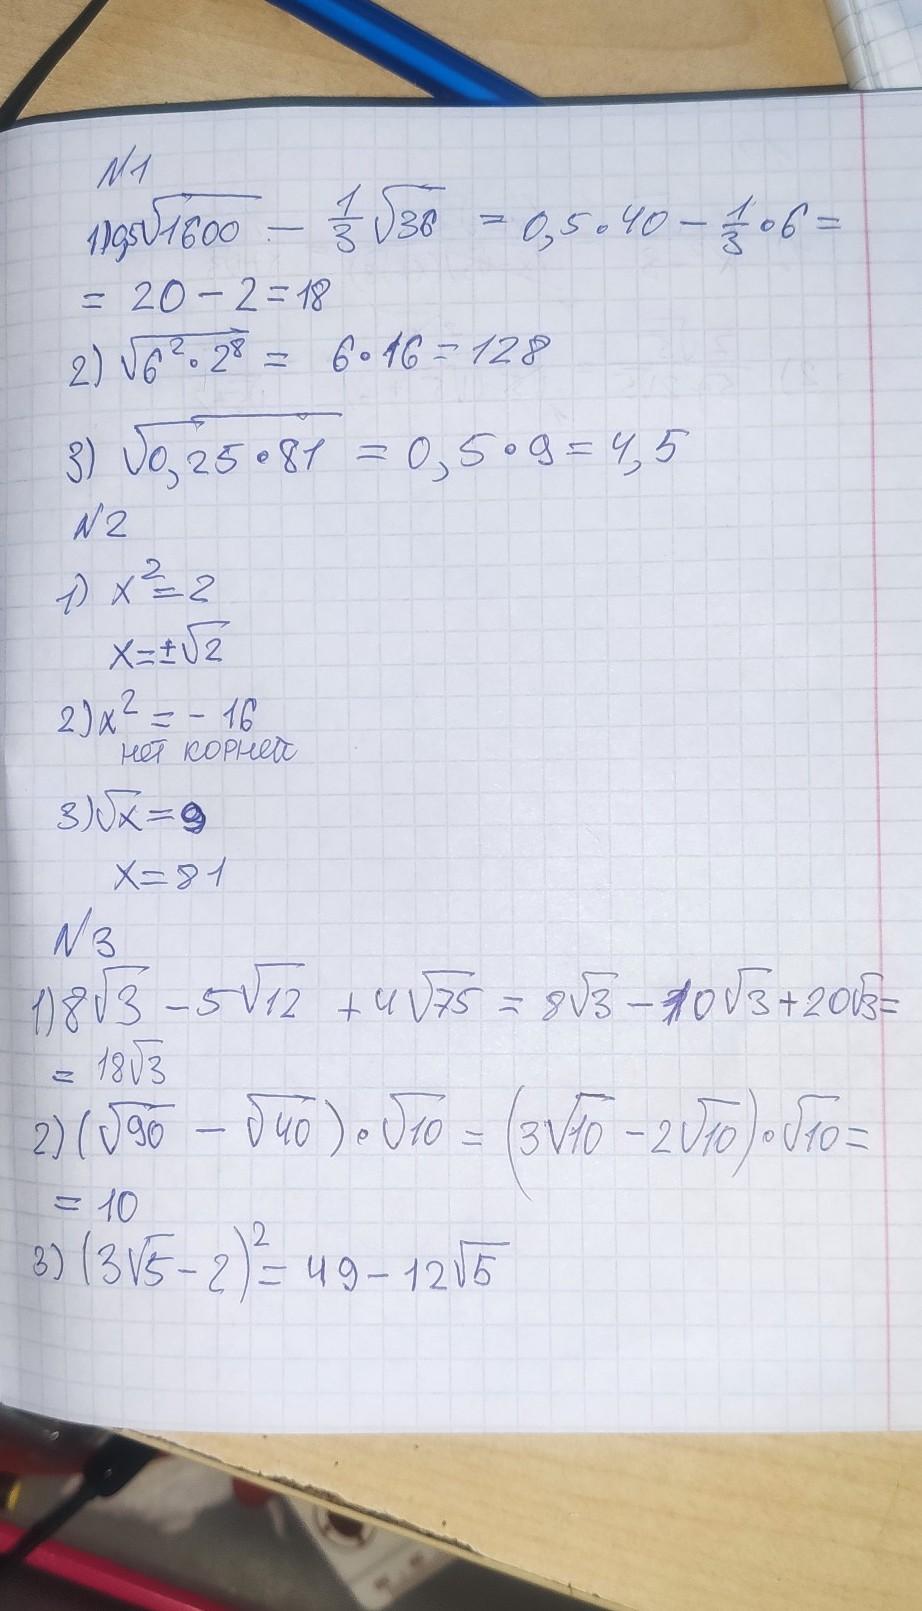 N1
1) 0,5√1600 − 1/3 √36 = 0,5·40 − 1/3·6 =
= 20 − 2 = 18
2) √6²·2⁸ = 6·16 = 128
3) √0,25·81 = 0,5·9 = 4,5
N2
1) x² = 2
x = ±√2
2) x² = − 16
нет корней
3) √x = 9
x = 81
N3
1) 8√3 − 5√12 + 4√75 = 8√3 − 10√3 + 20√3 =
= 18√3
2) (√90 − √40)·√10 = (3√10 − 2√10)·√10 =
= 10
3) (3√5 − 2)² = 49 − 12√5